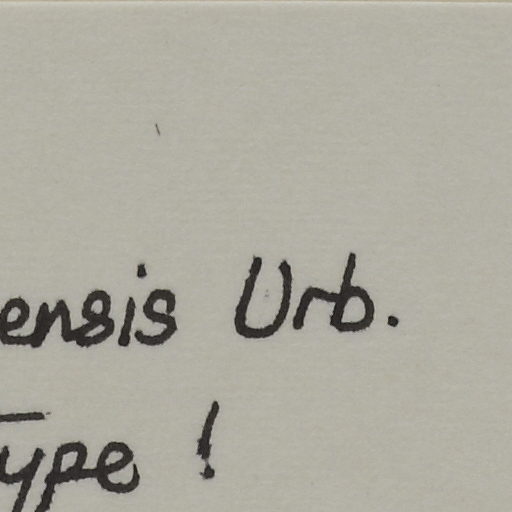 ensis Urb.
Type !